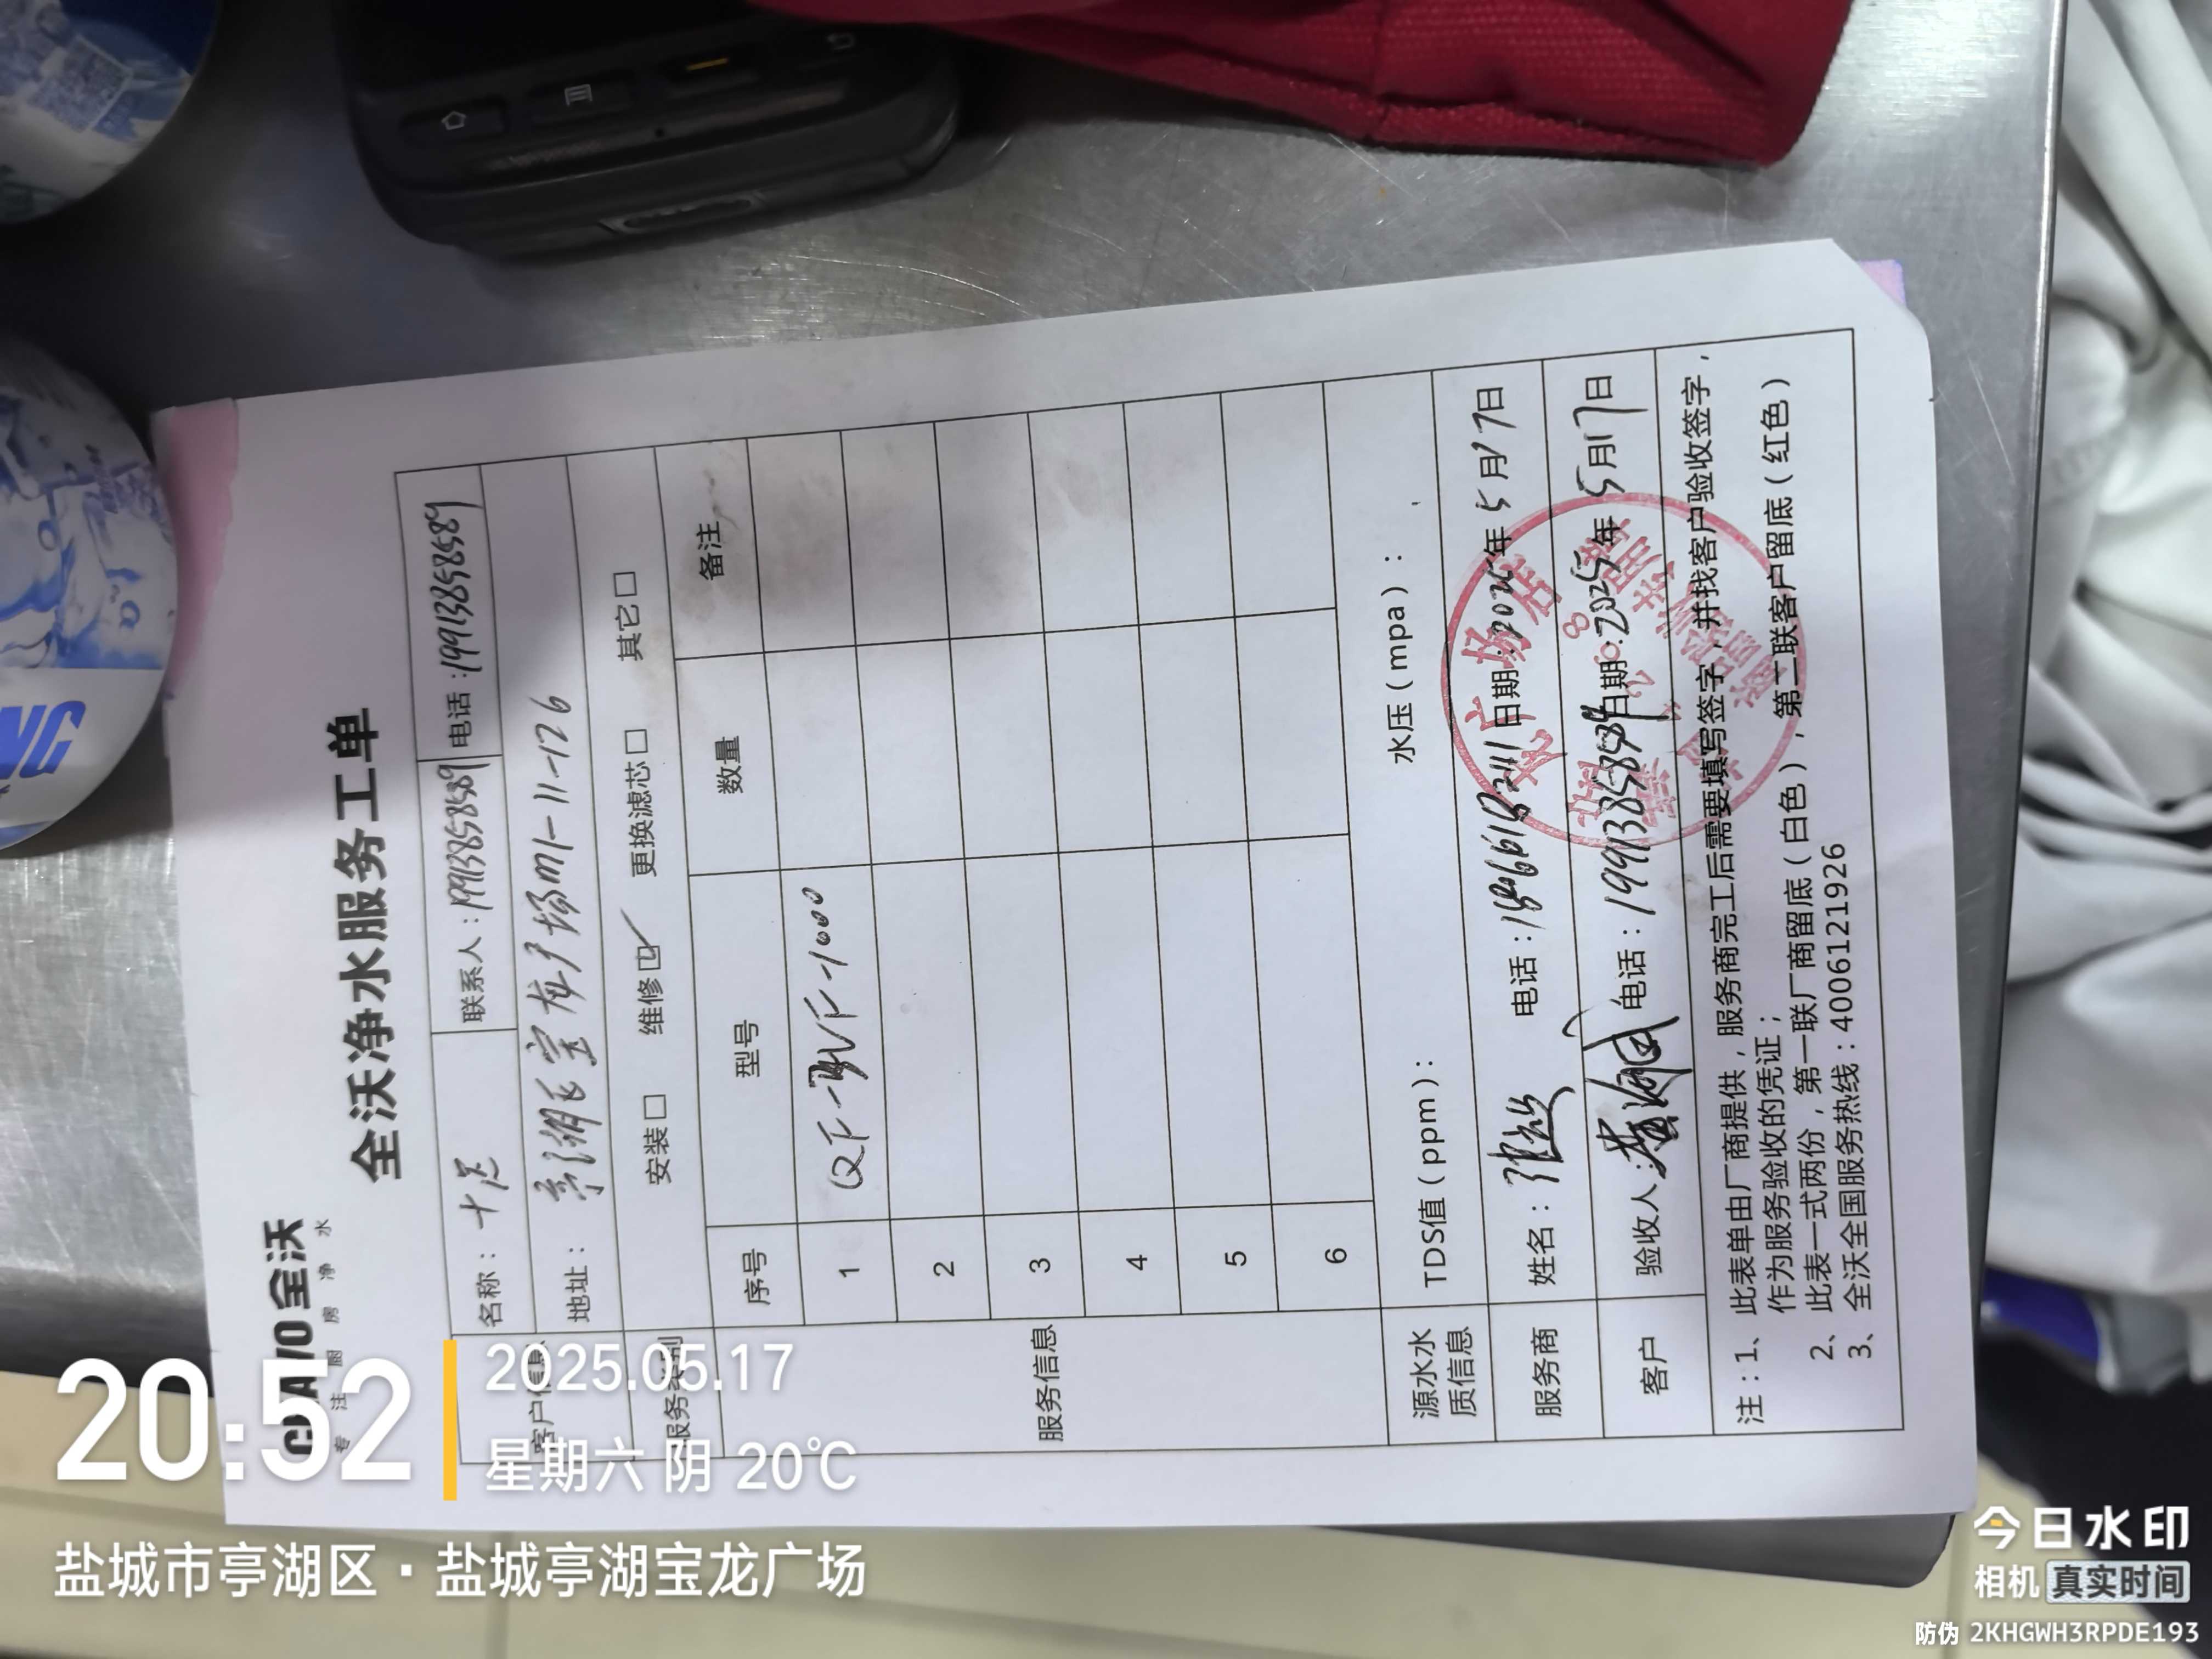 全沃
专注厨房净水
全沃净水服务工单
客户信息 名称：十足 联系人：19913858589 电话：19913858589
地址：亭湖区宝龙广场m1-11-126
服务类别 安装□ 维修☑ 更换滤芯□ 其它□
服务信息 序号 型号 数量 备注
1
2
3
4
5
6
源水水质信息 TDS值（ppm）： 水压（mpa）：
服务商 姓名： 电话： 日期：2025年5月17日
客户 验收人： 电话：19913858589 日期：2025年5月17日
注：1、此表单由厂商提供，服务商完工后需要填写签字，并找客户验收签字，
作为服务验收的凭证；
2、此表一式两份，第一联厂商留底（白色），第二联客户留底（红色）
3、全沃全国服务热线：4006121926
20:52
2025.05.17
星期六 阴 20℃
盐城市亭湖区·盐城亭湖宝龙广场
今日水印
相机 真实时间
防伪 2KHGWH3RPDE193